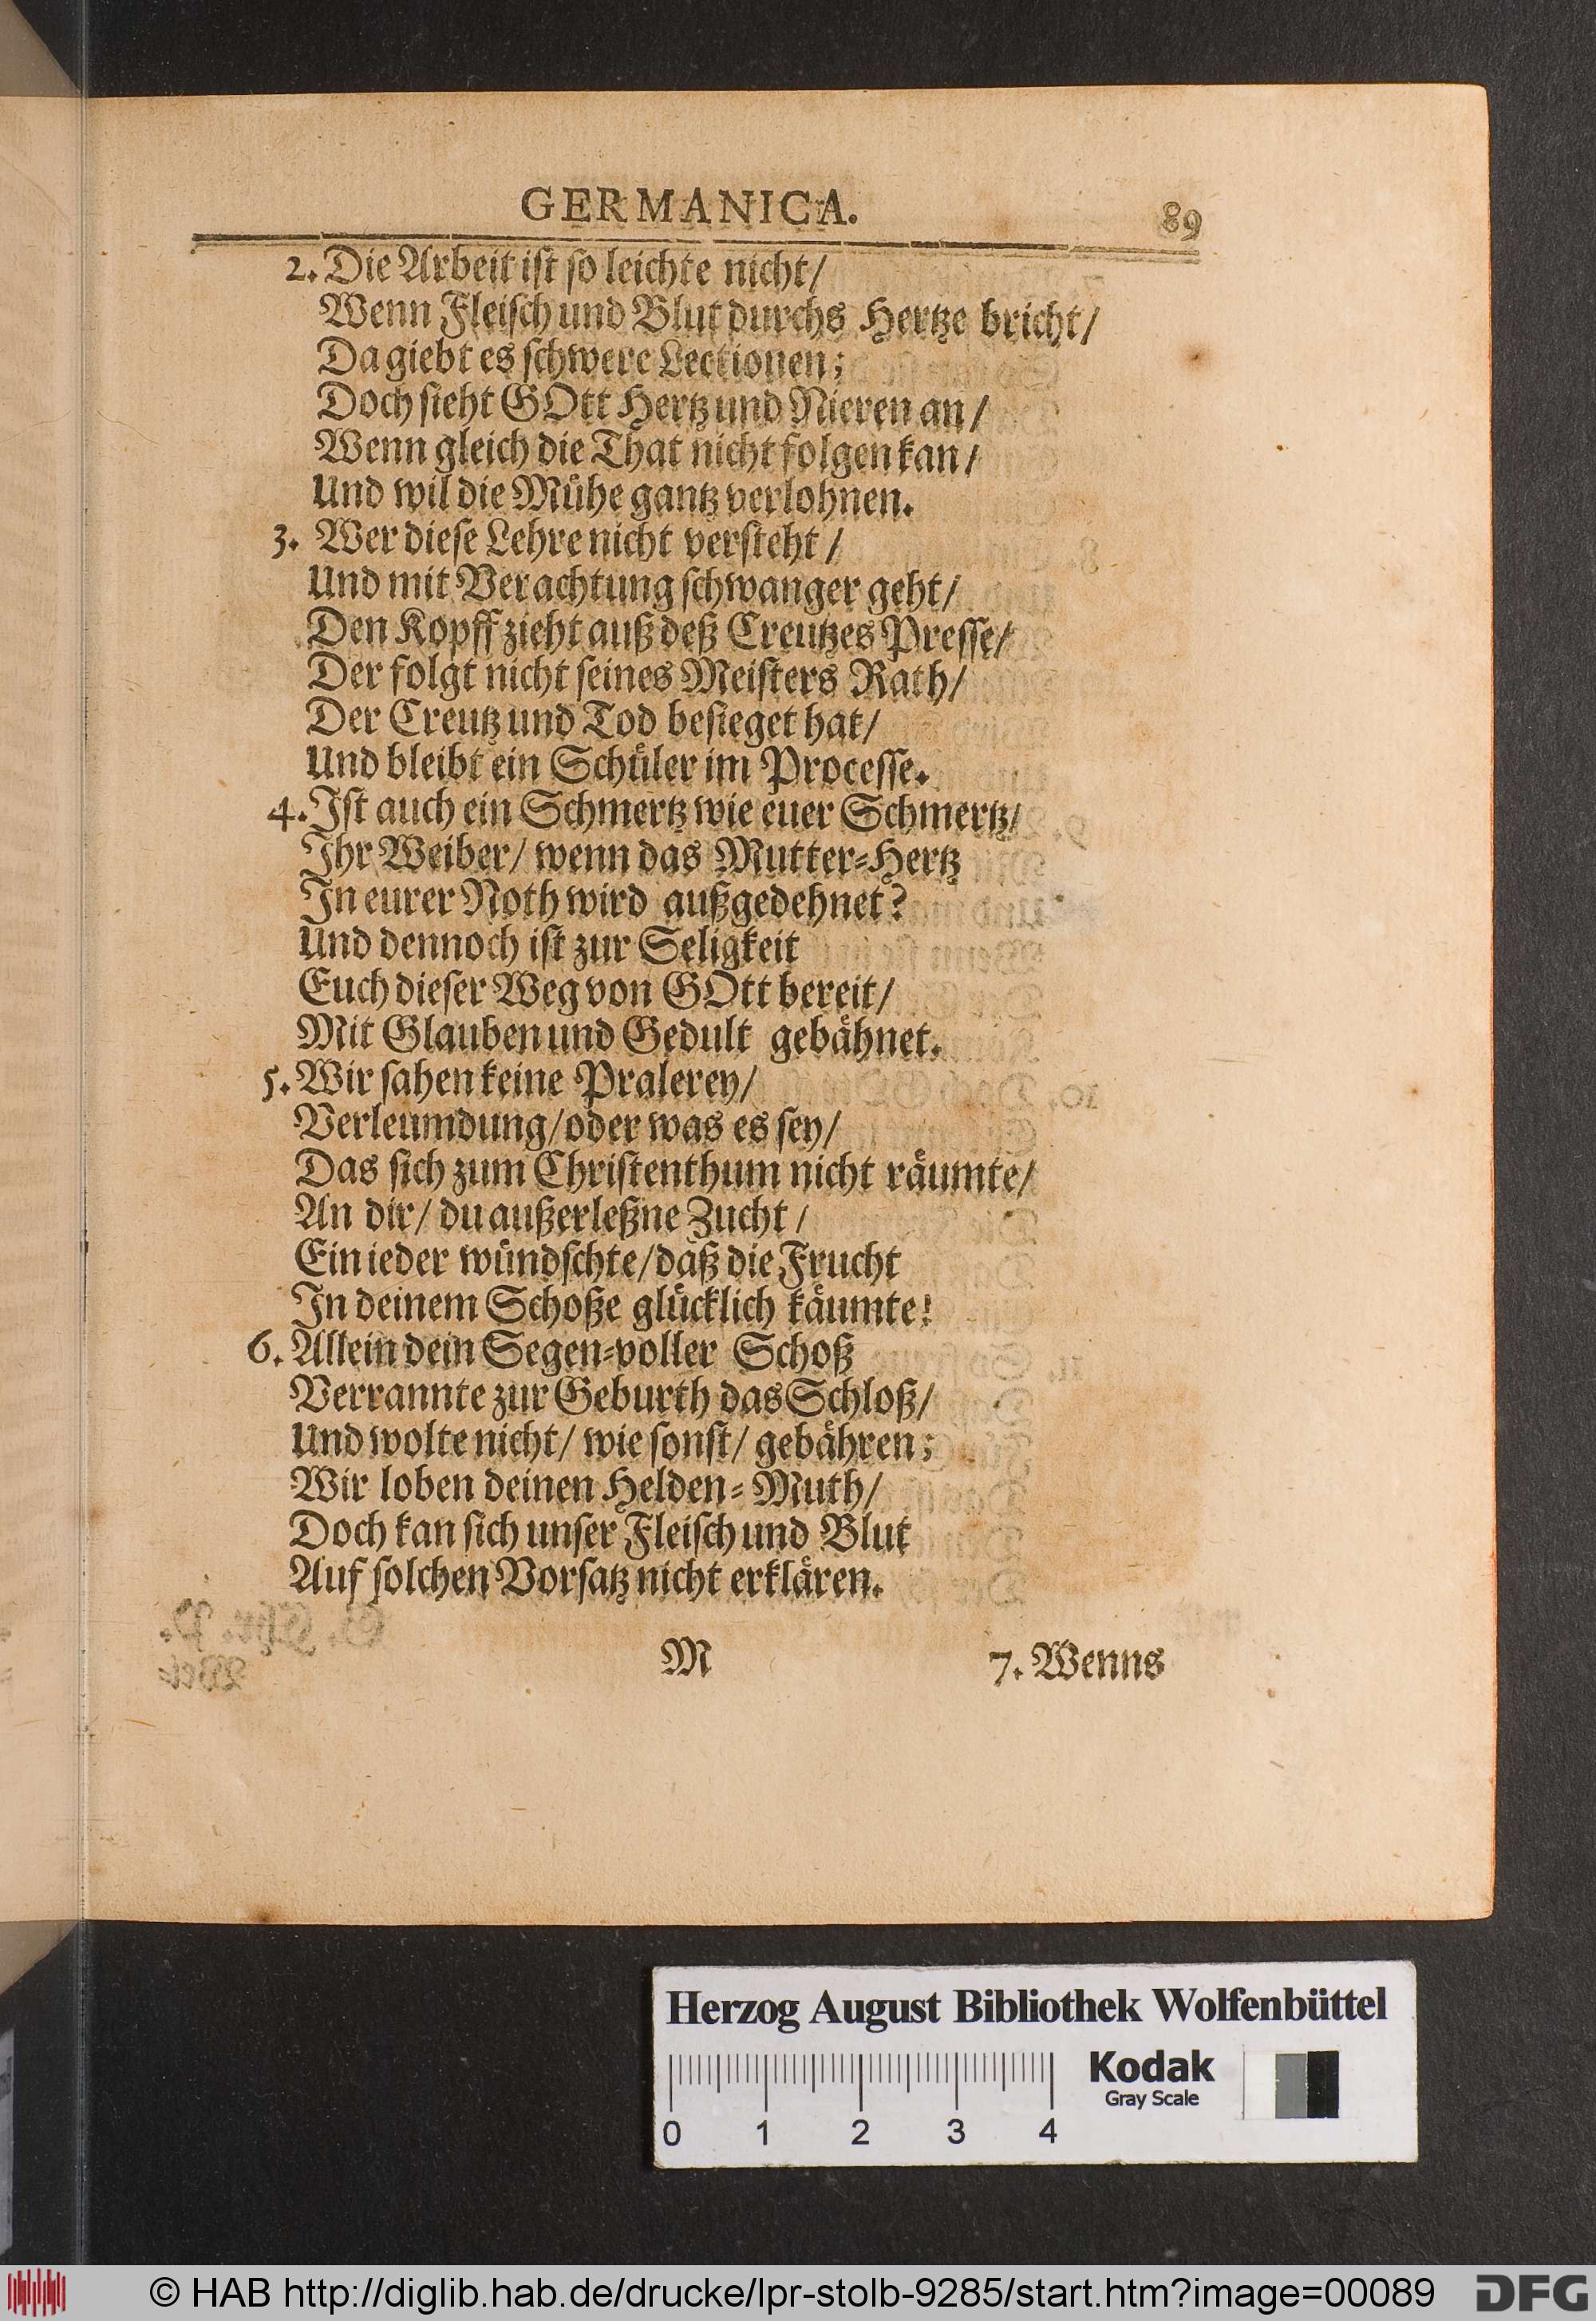 GERMANICA. 89
2. Die Arbeit ist so leichte nicht/
Wenn Fleisch und Blut durchs Hertze bricht/
Da giebt es schwere Lectionen;
Doch sieht GOtt Hertz und Nieren an/
Wenn gleich die That nicht folgen kan/
Und wil die Mühe gantz verlohnen.
3. Wer diese Lehre nicht versteht/
Und mit Verachtung schwanger geht/
Den Kopff zieht auß deß Creutzes Presse/
Der folgt nicht seines Meisters Rath/
Der Creutz und Tod besieget hat/
Und bleibt ein Schüler im Processe.
4. Ist auch ein Schmertz wie euer Schmertz/
Ihr Weiber/ wenn das Mutter-Hertz
In eurer Noth wird außgedehnet?
Und dennoch ist zur Seligkeit
Euch dieser Weg von GOtt bereit/
Mit Glauben und Gedult gebähnet.
5. Wir sahen keine Pralerey/
Verleumdung/ oder was es sey/
Das sich zum Christenthum nicht räumte/
An dir/ du außerleßne Zucht/
Ein ieder wündschte/ daß die Frucht
In deinem Schoße glücklich käumte!
6. Allein dein Segen-voller Schoß
Verrannte zur Geburth das Schloß/
Und wolte nicht/ wie sonst/ gebähren;
Wir loben deinen Helden-Muth/
Doch kan sich unser Fleisch und Blut
Auf solchen Vorsatz nicht erklären.
M 7. Wenns
Herzog August Bibliothek Wolfenbüttel
Kodak
Gray Scale
0 1 2 3 4
© HAB http://diglib.hab.de/drucke/lpr-stolb-9285/start.htm?image=00089 DFG